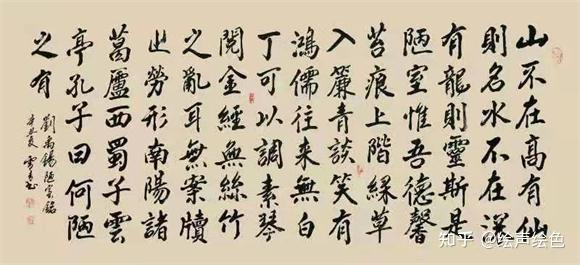 山不在高有仙
則名水不在深
有龍則靈斯是
陋室惟吾德馨
苔痕上階緑草
入簾青談笑有
鴻儒往来無白
丁可以調素琴
閱金經無絲竹
之亂耳無案牘
之勞形南陽諸
葛廬西蜀子雲
亭孔子曰何陋
之有
劉禹錫陋室銘
辛丑夏
知乎 @绘声绘色